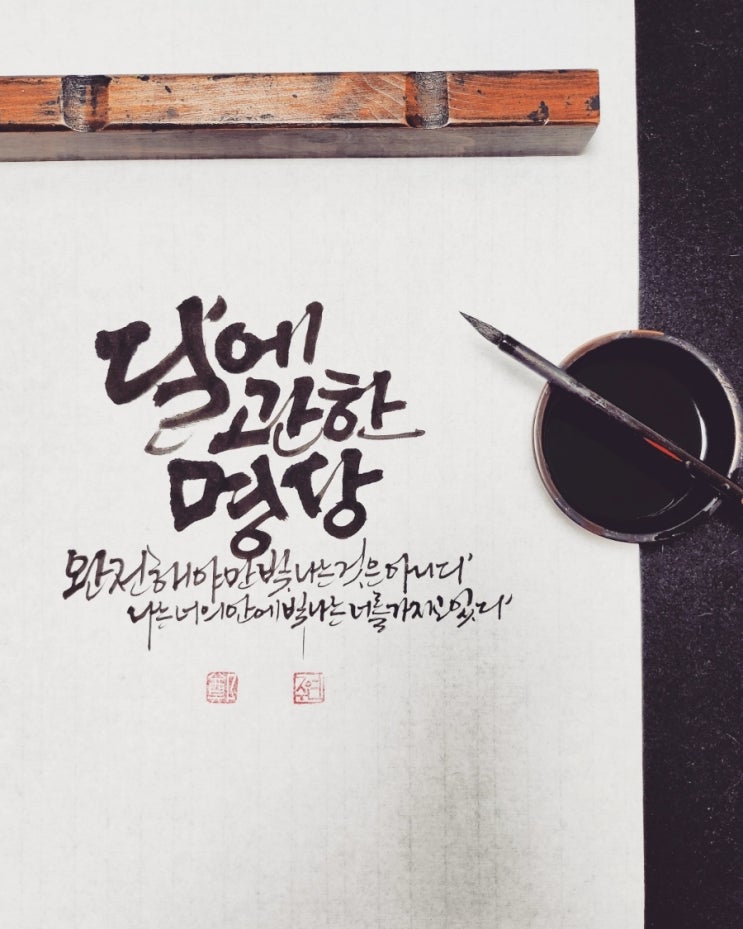 달에
관한
명상
완전해야만 빛나는 것은 아니다
나는 너의 안에 빛나는 너를 가지고 있다